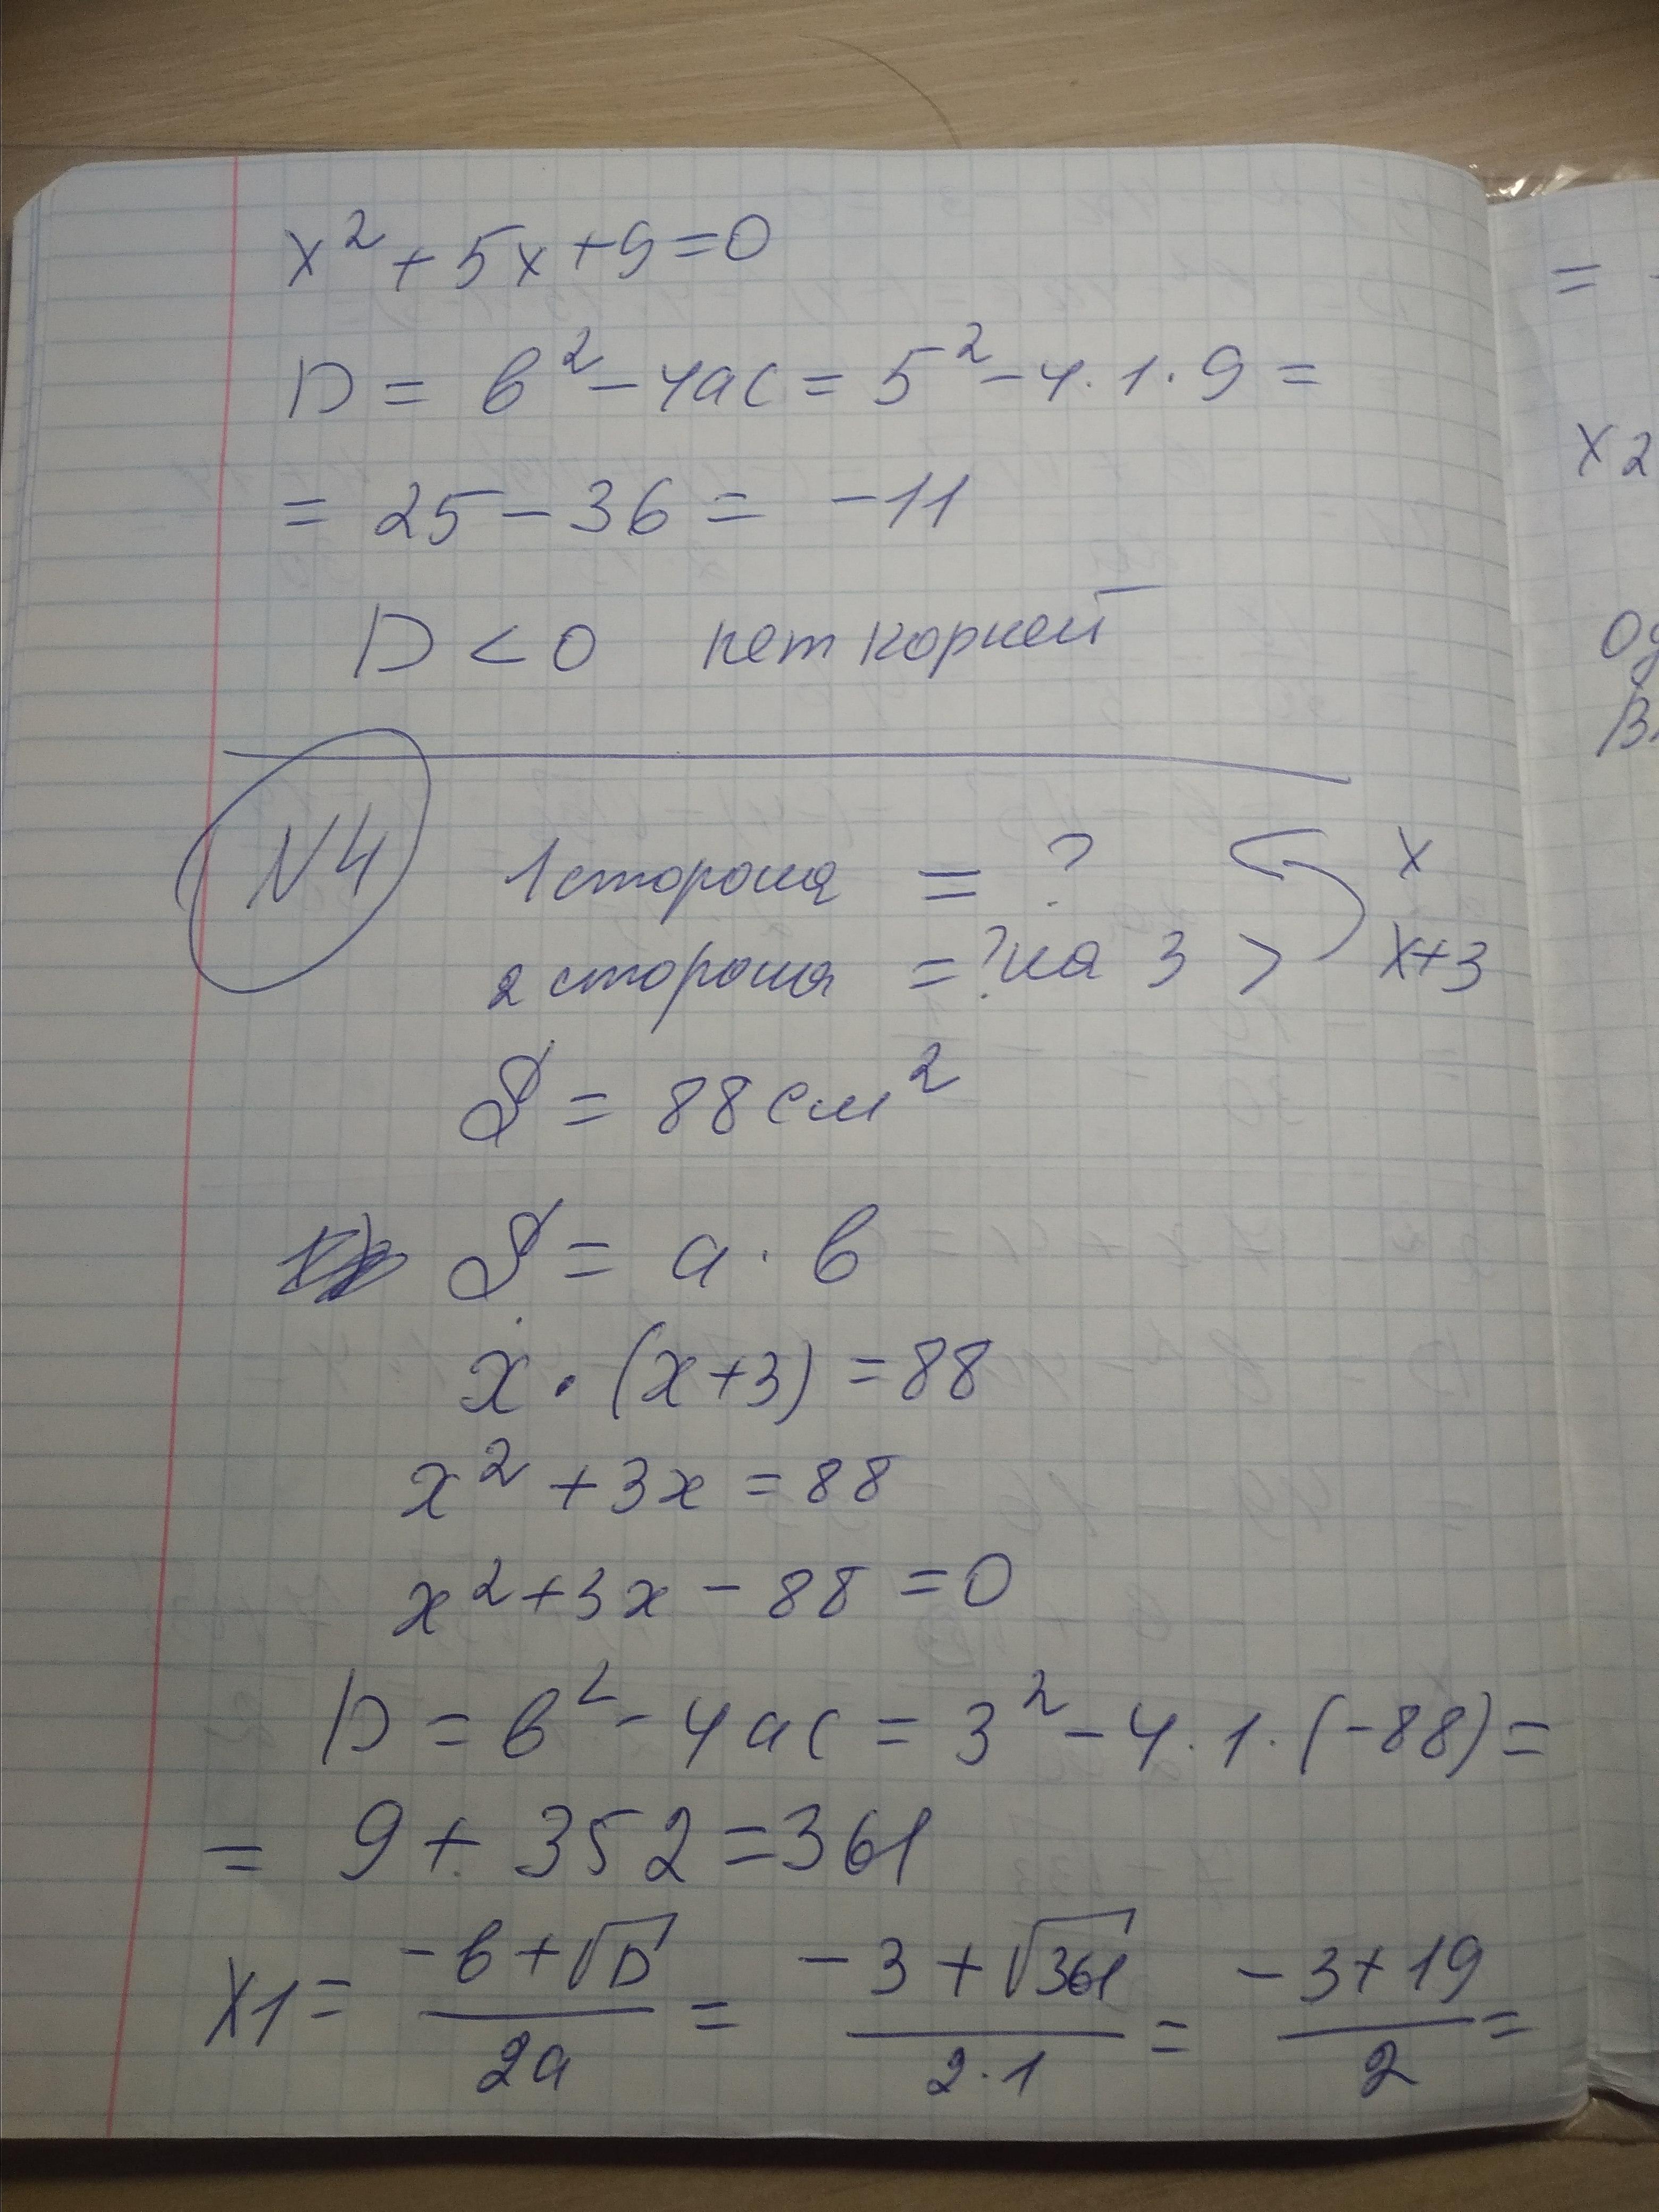 x² + 5x + 9 = 0
D = в² - 4ac = 5² - 4 · 1 · 9 =
= 25 - 36 = -11
D < 0 нет корней
N4 1 сторона = ? x
2 сторона = ? на 3 > x+3
S = 88 см²
S = a · в
x · (x+3) = 88
x² + 3x = 88
x² + 3x - 88 = 0
D = в² - 4ac = 3² - 4 · 1 · (-88) =
= 9 + 352 = 361
x1 = (-в + √D)/2a = (-3 + √361)/2·1 = (-3 + 19)/2 =
=
x2